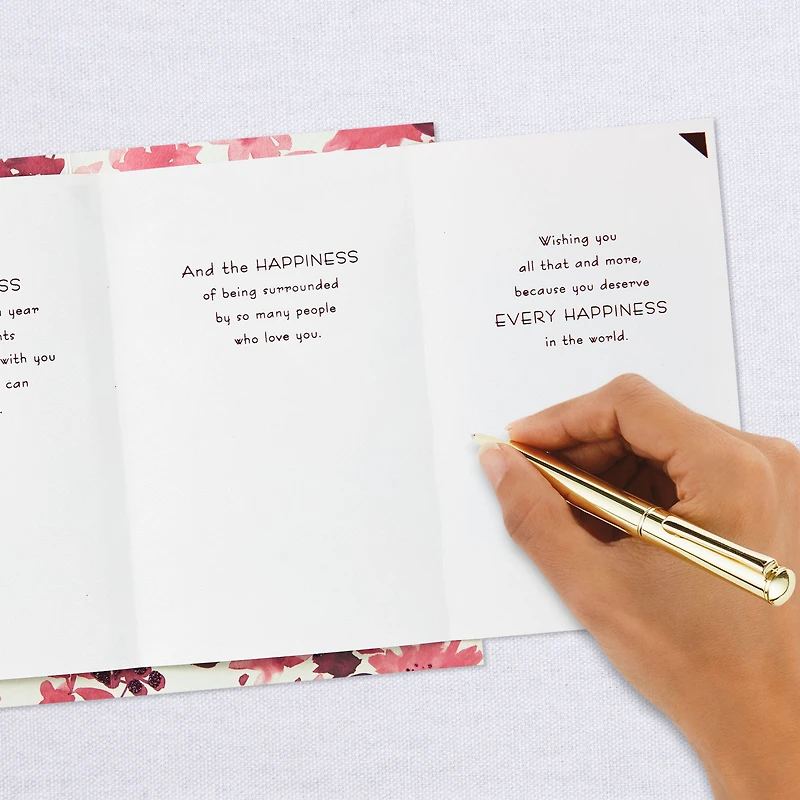 SS
year
ts
with you
can
.
And the HAPPINESS
of being surrounded
by so many people
who love you.
Wishing you
all that and more,
because you deserve
EVERY HAPPINESS
in the world.